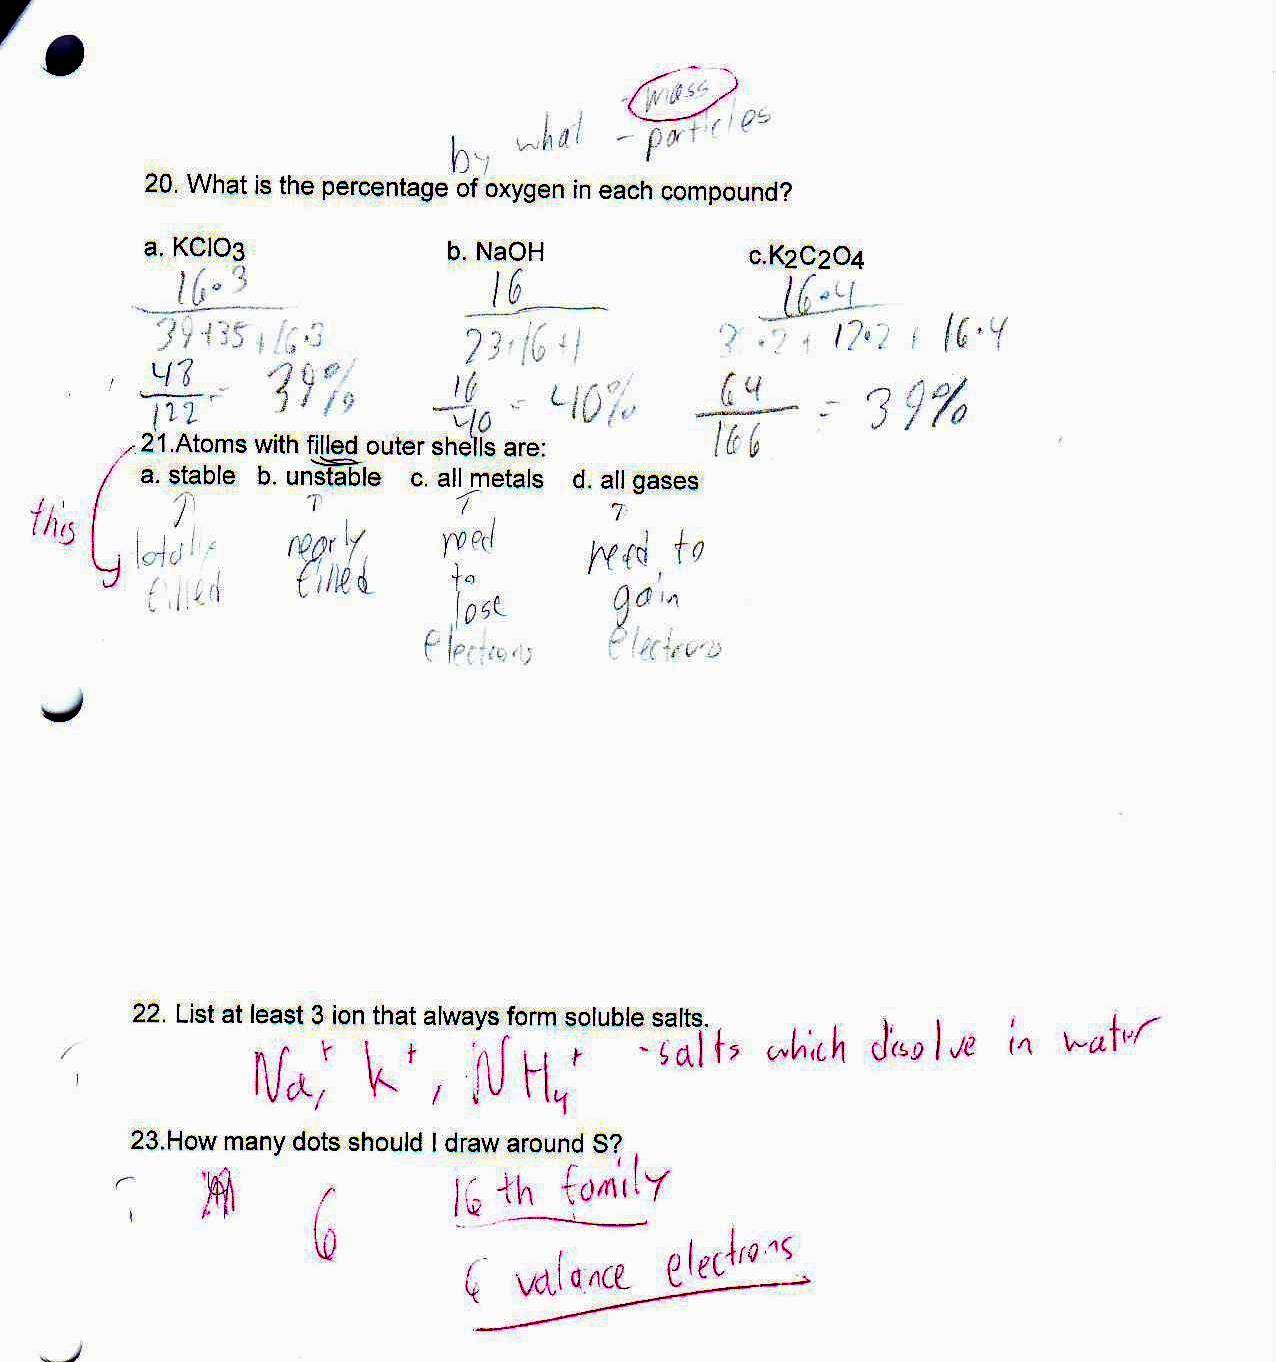 mass
by what - particles
20. What is the percentage of oxygen in each compound?
a. KClO3 b. NaOH c.K2C2O4
16•3 16 16•4
39+35+16•3 23+16+1 •2+ 12•2 + 16•4
48 16 64
122 = 39% 40 = 40% 166 = 39%
21.Atoms with filled outer shells are:
a. stable b. unstable c. all metals d. all gases
this
totally nearly need need to
filled filled to gain
lose electrons
electrons
22. List at least 3 ion that always form soluble salts.
Na+, K+, NH4+ -salts which disolve in water
23.How many dots should I draw around S?
6 16th family
6 valance electrons